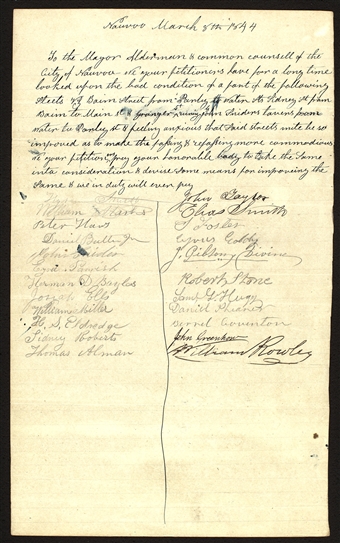 Nauvoo March 8th 1844
To the Mayor Alderman & common counsell of the
City of Nauvoo we your petitioners have for a long time
looked upon the bad condition of a part of the following
Streets Viz Bain Street from Parley to water St Sidney St from
Bain to Main St & Granger running John Sniders tavern from
water to Parley St & feeling anxious that said Streets mite be so
improved as to make the passing & repassing more commodious
we your petitioners pray your honorable body to take the same
into consideration & devise some means for improving the
Same & we in duty will ever pray
John Taylor
William Marks
Elias Smith
Peter Haws
J Foster
David Butler Jr
Cyrus Canby
J. Gibson Divine
Ezra Parrish
Robert Stone
Herman D Bayles
Saml G Flagg
Josiah Ells
Daniel Shearer
William Miller
Berrel Coventon
H. S. Eldredge
John Greenhow
Sidney Roberts
William Rowley
Thomas Alman